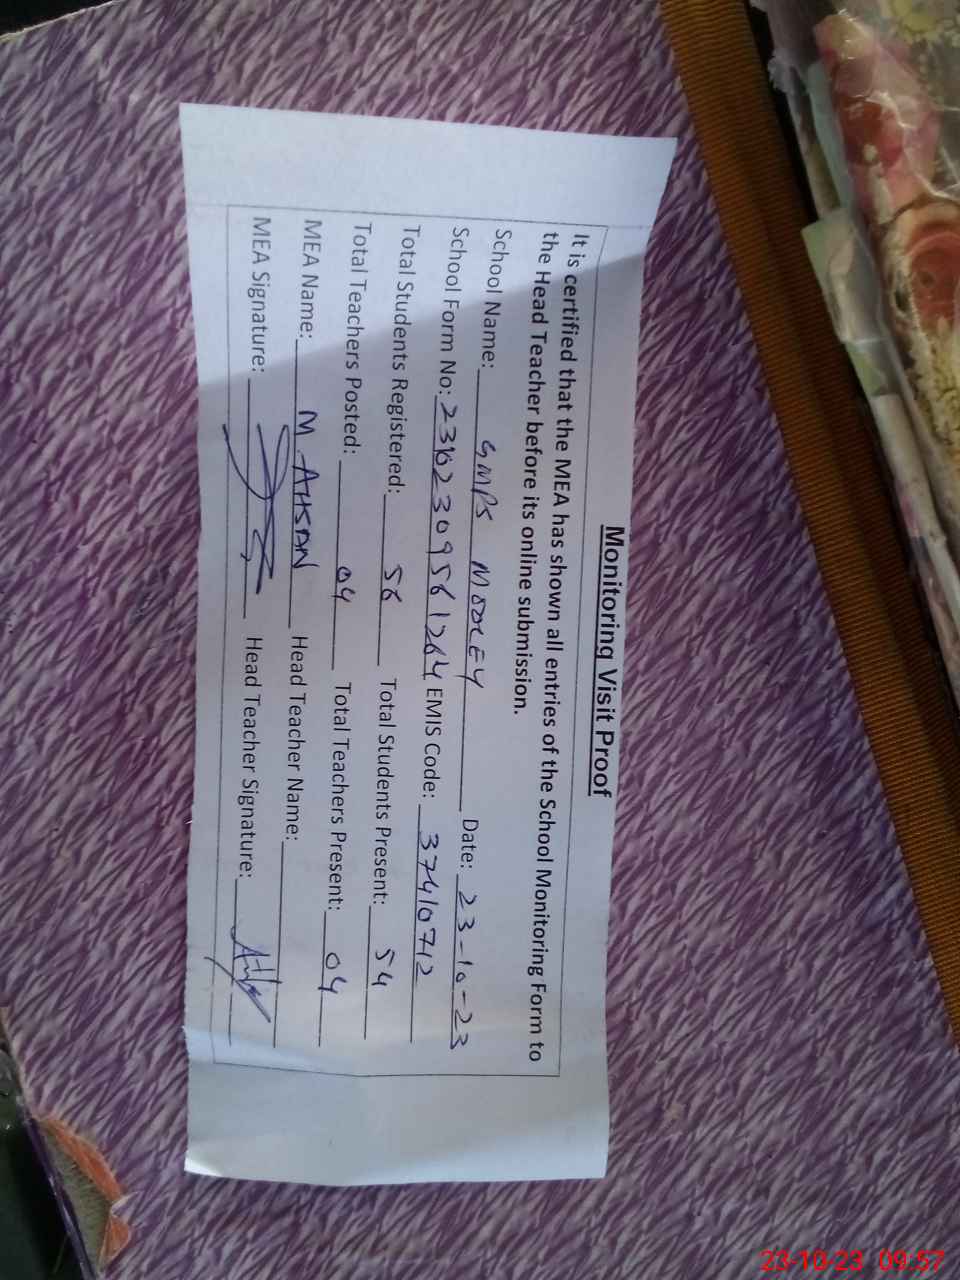 Monitoring Visit Proof
It is certified that the MEA has shown all entries of the School Monitoring Form to
the Head Teacher before its online submission.
School Name: GMPS Date: 23-10-23
School Form No: EMIS Code: 37410712
Total Students Registered: 56 Total Students Present: 54
Total Teachers Posted: 04 Total Teachers Present: 04
MEA Name: M. AHSAN Head Teacher Name:
MEA Signature: Head Teacher Signature:
23-10-23 09:57